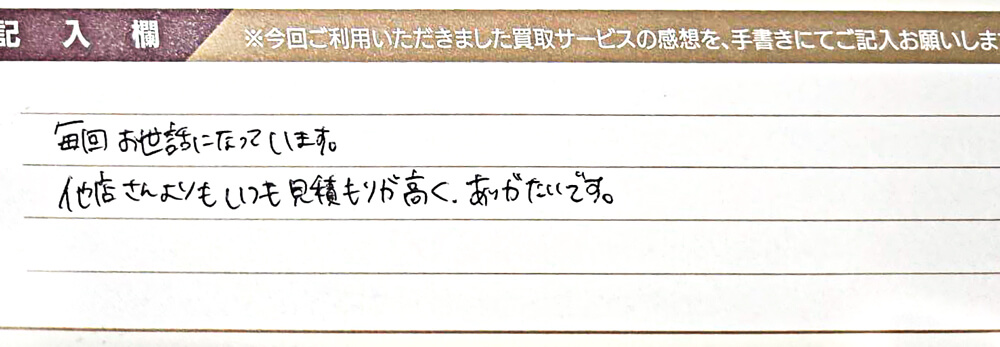 記入欄 ※今回ご利用いただきました買取サービスの感想を、手書きにてご記入お願いします
毎回お世話になっています。
他店さんよりもいつも見積もりが高く、ありがたいです。